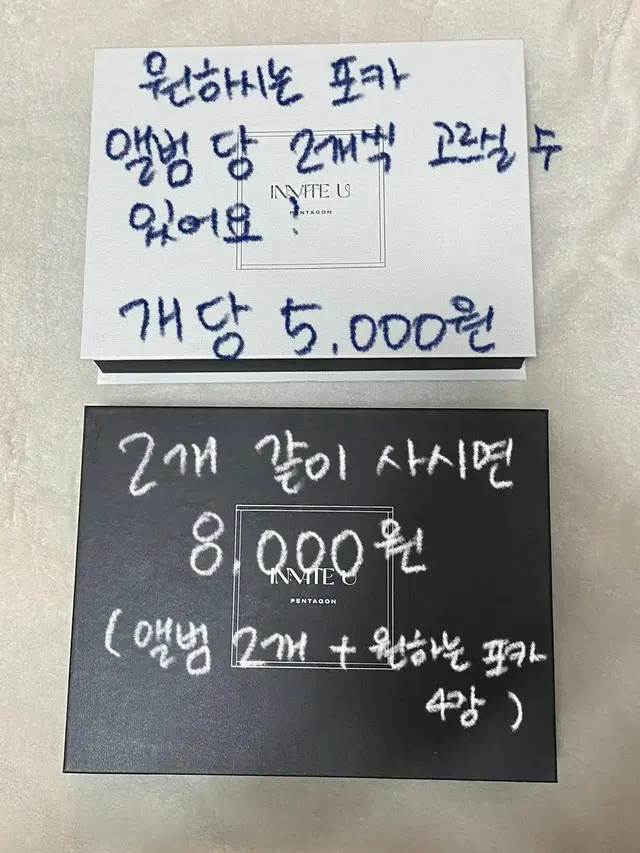 원하시는 포카
앨범 당 2개씩 고르실 수
INVITE U
PENTAGON
있어요!
개당 5,000원
2개 같이 사시면
8,000원
INVITE U
PENTAGON
(앨범 2개 + 원하는 포카
4장)